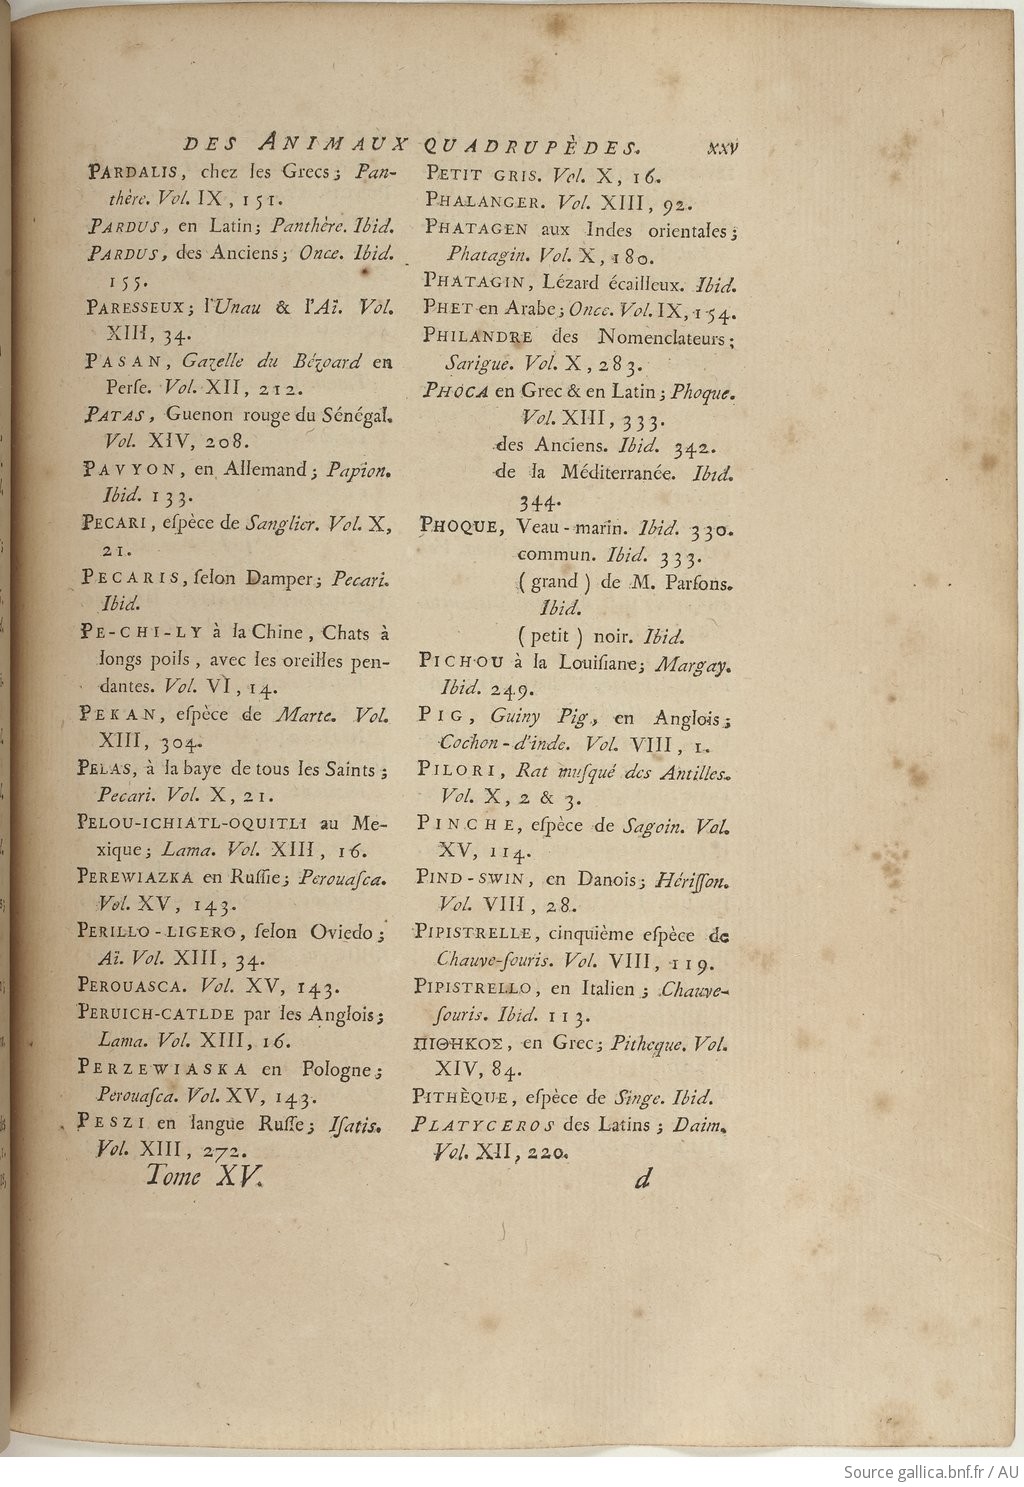 DES ANIMAUX QUADRUPÈDES. xxv
PARDALIS, chez les Grecs; Pan-
thère. Vol. IX, 151.
PARDUS, en Latin; Panthère. Ibid.
PARDUS, des Anciens; Once. Ibid.
155.
PARESSEUX; l'Unau & l'Aï. Vol.
XIII, 34.
PASAN, Gazelle du Bézoard en
Perſe. Vol. XII, 212.
PATAS, Guenon rouge du Sénégal.
Vol. XIV, 208.
PAVYON, en Allemand; Papion.
Ibid. 133.
PECARI, eſpèce de Sanglier. Vol. X,
21.
PECARIS, ſelon Damper; Pecari.
Ibid.
PE-CHI-LY à la Chine, Chats à
longs poils, avec les oreilles pen-
dantes. Vol. VI, 14.
PEKAN, eſpèce de Marte. Vol.
XIII, 304.
PELAS, à la baye de tous les Saints;
Pecari. Vol. X, 21.
PELOU-ICHIATL-OQUITLI au Me-
xique; Lama. Vol. XIII, 16.
PEREWIAZKA en Ruſſie; Perouaſca.
Vol. XV, 143.
PERILLO-LIGERO, ſelon Oviedo;
Aï. Vol. XIII, 34.
PEROUASCA. Vol. XV, 143.
PERUICH-CATLDE par les Anglois;
Lama. Vol. XIII, 16.
PERZEWIASKA en Pologne;
Perouaſca. Vol. XV, 143.
PESZI en langue Ruſſe; Iſatis.
Vol. XIII, 272.
Tome XV.
PETIT GRIS. Vol. X, 16.
PHALANGER. Vol. XIII, 92.
PHATAGEN aux Indes orientales;
Phatagin. Vol. X, 180.
PHATAGIN, Lézard écailleux. Ibid.
PHET en Arabe; Once. Vol. IX, 154.
PHILANDRE des Nomenclateurs;
Sarigue. Vol. X, 283.
PHOCA en Grec & en Latin; Phoque.
Vol. XIII, 333.
des Anciens. Ibid. 342.
de la Méditerranée. Ibid.
344.
PHOQUE, Veau-marin. Ibid. 330.
commun. Ibid. 333.
(grand) de M. Parſons.
Ibid.
(petit) noir. Ibid.
PICHOU à la Louiſiane; Margay.
Ibid. 249.
PIG, Guiny Pig, en Anglois;
Cochon-d'inde. Vol. VIII, 1.
PILORI, Rat muſqué des Antilles.
Vol. X, 2 & 3.
PINCHE, eſpèce de Sagoin. Vol.
XV, 114.
PIND-SWIN, en Danois; Hériſſon.
Vol. VIII, 28.
PIPISTRELLE, cinquième eſpèce de
Chauve-ſouris. Vol. VIII, 119.
PIPISTRELLO, en Italien; Chauve-
ſouris. Ibid. 113.
ΠΙΘΗΚΟΣ, en Grec; Pitheque. Vol.
XIV, 84.
PITHÈQUE, eſpèce de Singe. Ibid.
PLATYCEROS des Latins; Daim.
Vol. XII, 220.
d
Source gallica.bnf.fr / AU